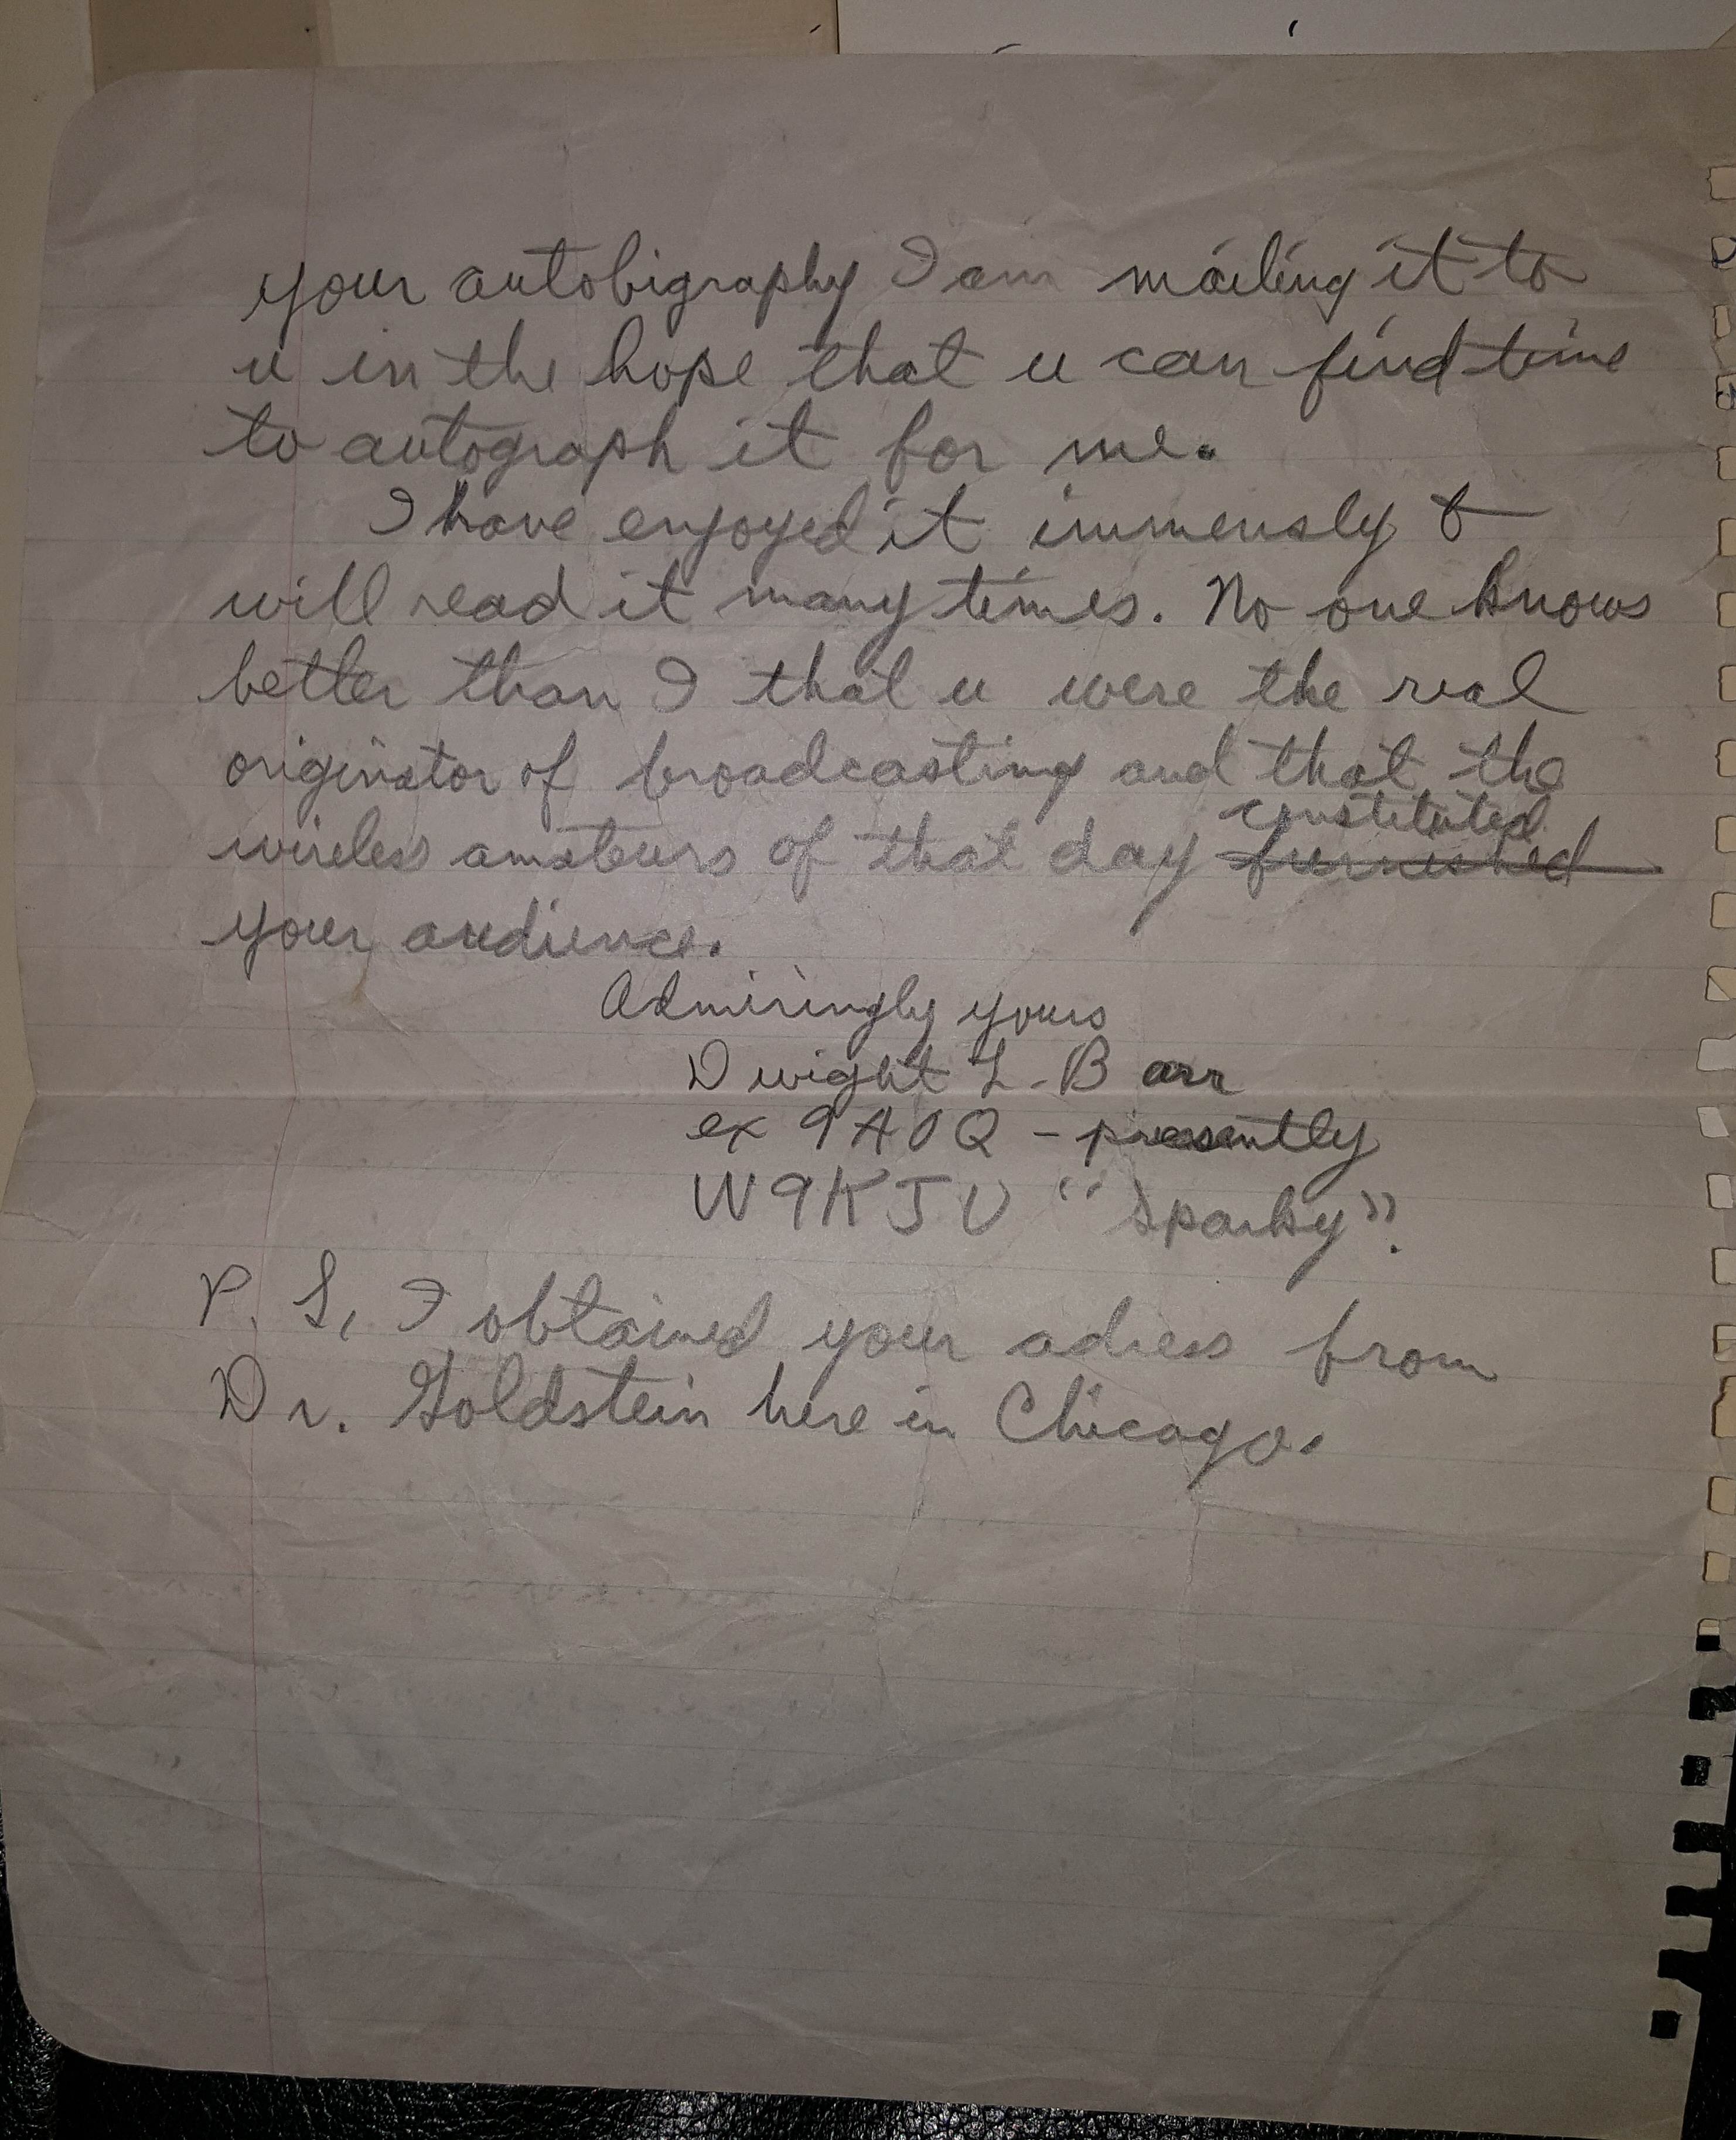 your autobigraphy I am mailing it to
u in the hope that u can find time
to autograph it for me.
I have enjoyed it immensly &
will read it many times. No one knows
better than I that u were the real
originator of broadcasting and that the
constituted
wireless amateurs of that day furnished
your audience.
Admiringly yours
Dwight L. Barr
ex 9AOQ - presently
W9KJU "Sparky".
P. S, I obtained your adress from
Dr. Goldstein here in Chicago.